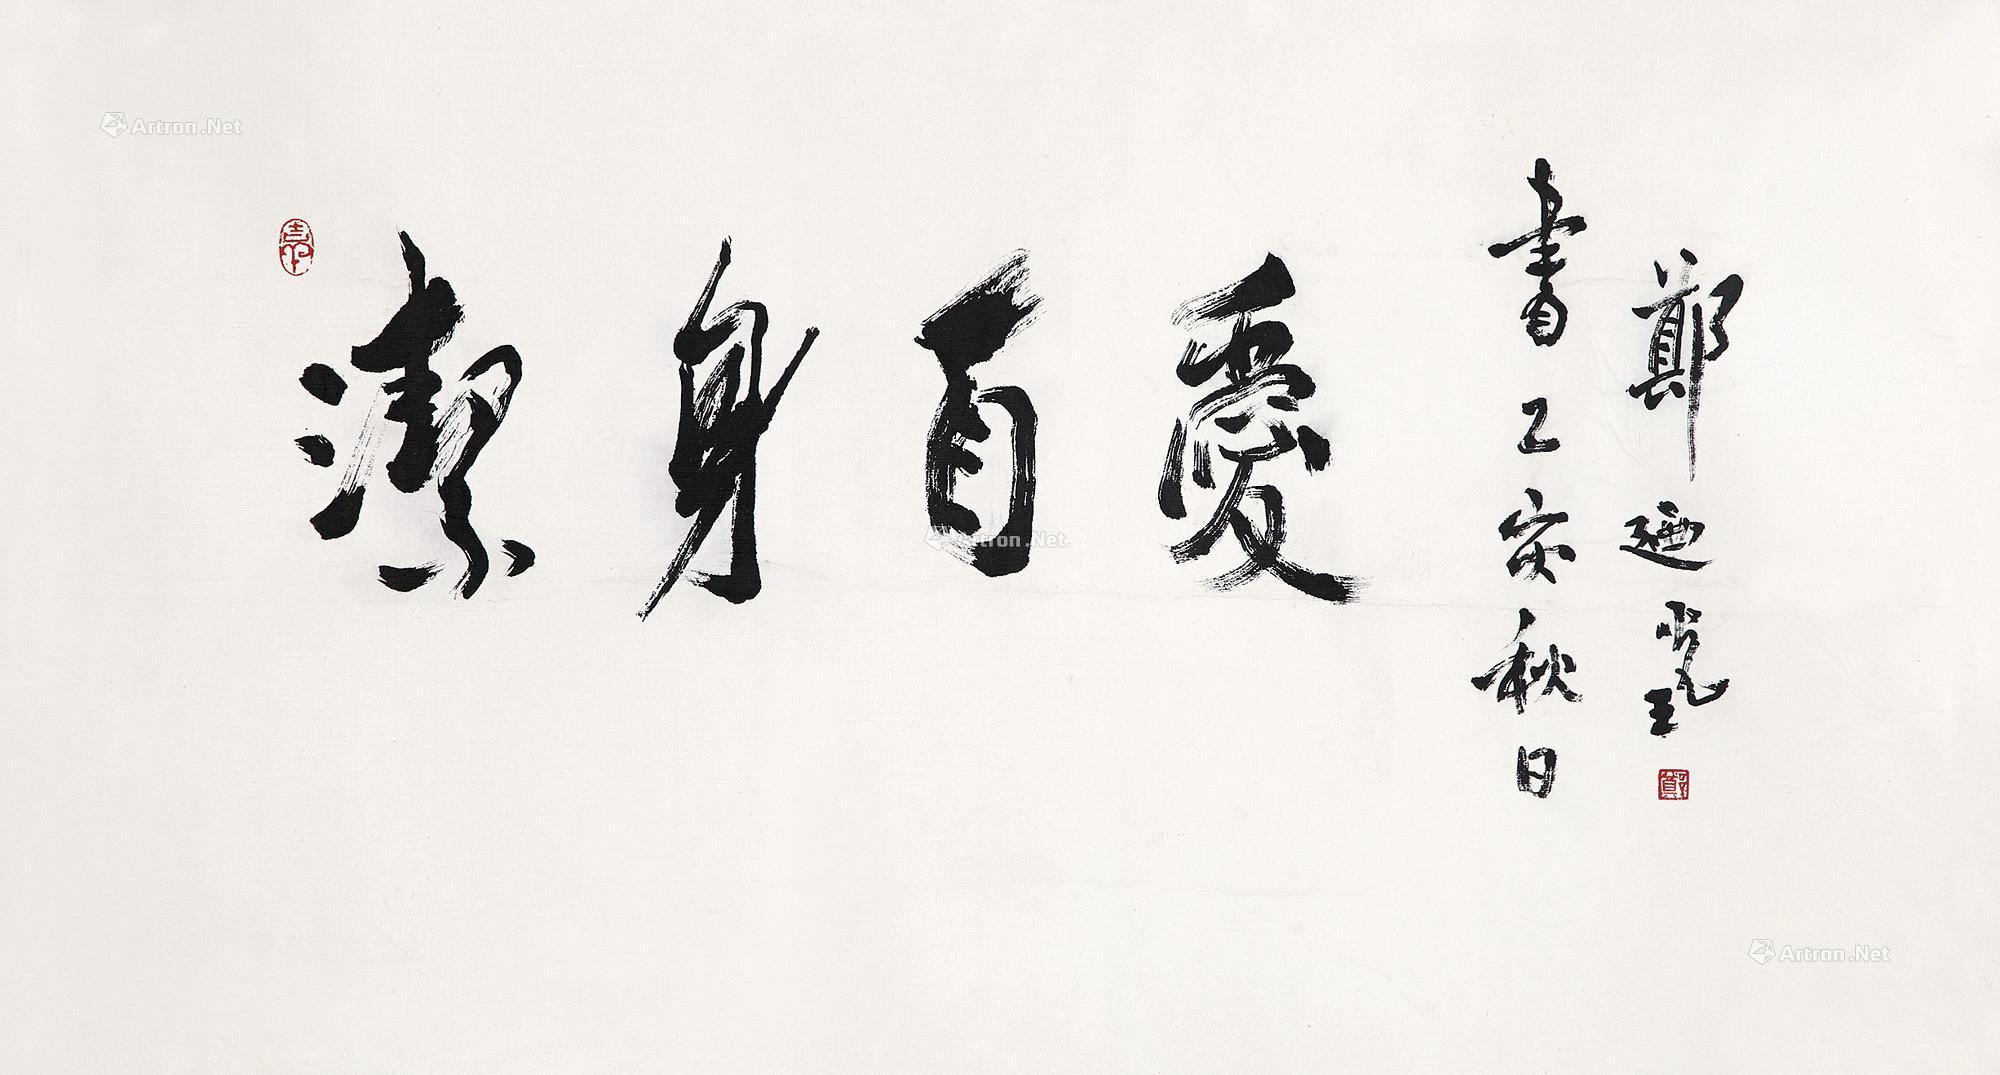 潔身自愛
鄭迺光玉
書乙亥秋日
Artron.Net
Artron.Net
Artron.Net